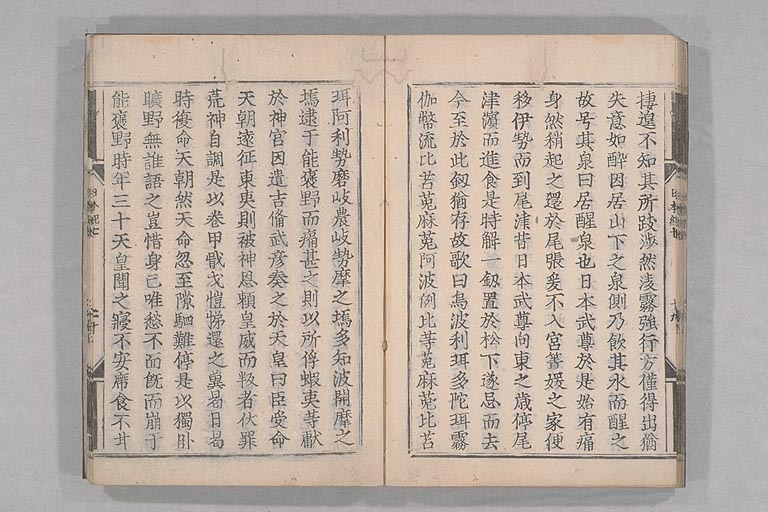 捿遑不知其所跋渉然淩霧強行方僅得出猶
失意如酔因居山下之泉側乃飲其水而醒之
故号其泉曰居醒泉也日本武尊於是始有痛
身然稍起之還於尾張爰不入宮簀媛之家便
移伊勢而到尾津昔日本武尊向東之歳停尾
津濱而進食是時解一釼置於松下遂忘而去
今至於此釼猶存故歌曰烏波利珥多陀珥霧
伽幣流比苔菟麻菟阿波例比等菟麻菟比苔
珥阿利勢磨岐農岐勢摩之塢多知波開摩之
塢逮于能褒野而痛甚之則以所俘蝦夷等獻
於神宮因遣吉備武彦奏之於天皇曰臣受命
天朝遠征東夷則被神恩頼皇威而叛者伏罪
荒神自調是以巻甲戢戈愷悌還之冀曷日曷
時復命天朝然天命忽至隙駟難停是以獨臥
曠野無誰語之豈惜身亡唯愁不面既而崩于
能褒野時年三十天皇聞之寢不安席食不甘